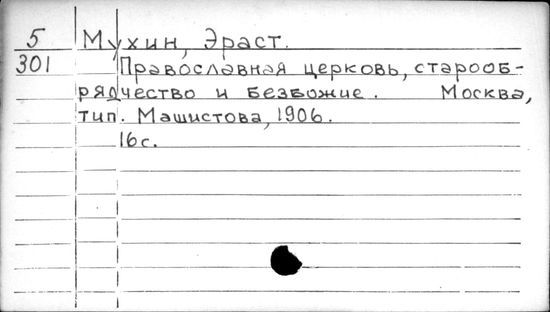 5 Мухин, Эраст.
301 Православная церковь, старооб-
рядчество и безбожие. Москва,
тип. Машистова, 1906.
16 с.